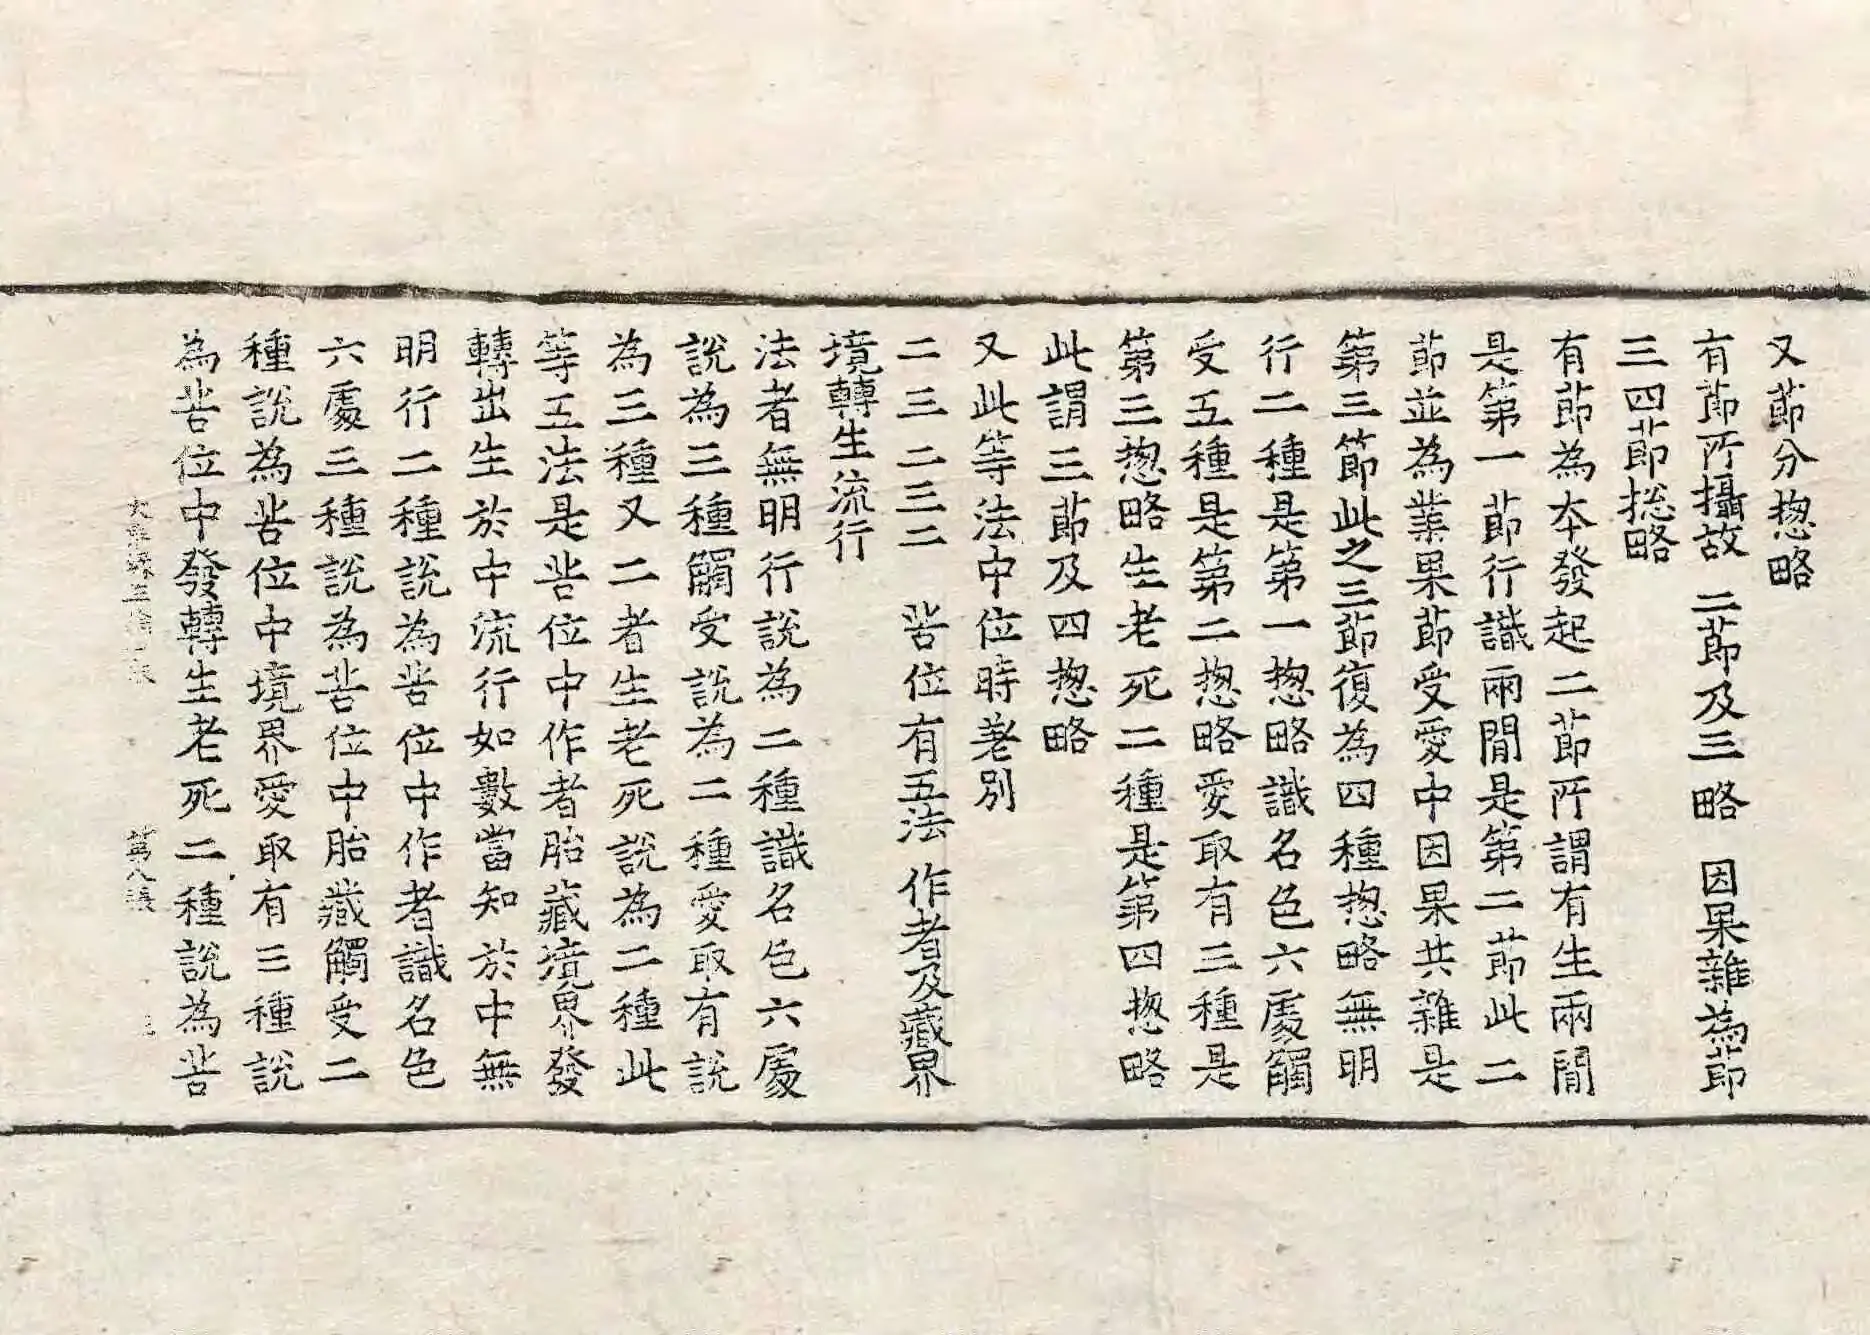 又莭分揔略
有莭所攝故　二莭及三略　因果雜為莭
三四莭揔略
有莭為本發起二莭所謂有生兩閒
是第一莭行識兩閒是第二莭此二
莭並為業果莭受愛中因果共雜是
第三節此之三莭復為四種揔略無明
行二種是第一揔略識名色六處觸
受五種是第二揔略愛取有三種是
第三揔略生老死二種是第四揔略
此謂三莭及四揔略
又此等法中位時差別
二三二三二　芇位有五法　作者及藏界
境轉生流行
法者無明行說為二種識名色六處
說為三種觸受說為二種愛取有說
為三種又二者生老死說為二種此
等五法是芇位中作者胎藏境界發
轉出生於中流行如數當知於中無
明行二種說為芇位中作者識名色
六處三種說為芇位中胎藏觸受二
種說為芇位中境界愛取有三種說
為芇位中發轉生老死二種說為芇
第八張